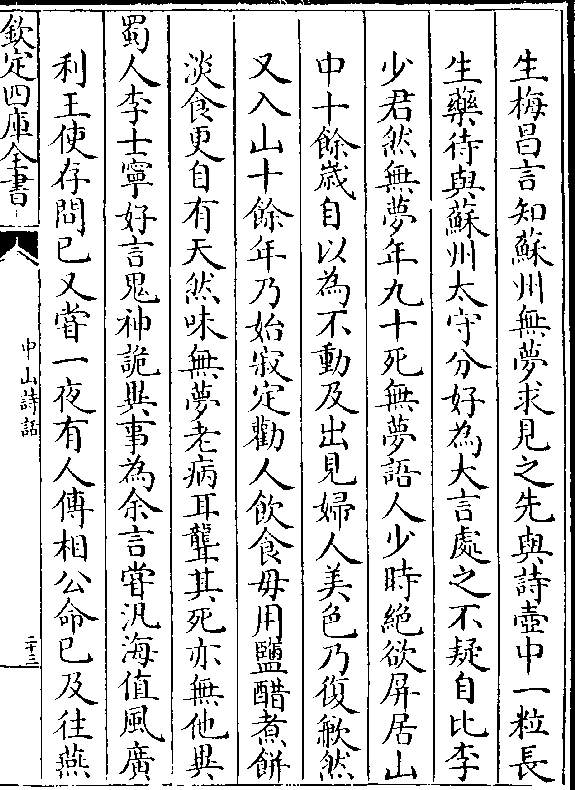 生梅昌言知蘇州無夢求見之先與詩壺中一粒長
生藥待與蘇州太守分好為大言處之不疑自比李
少君然無夢年九十死無夢語人少時絶欲屏居山
中十餘歲自以為不動及出見婦人美色乃復歉然
又入山十餘年乃始寂定勸人飲食毋用鹽醋煮餅
淡食更自有天然味無夢老病耳聾其死亦無他異
蜀人李士寧好言鬼神詭異事為余言嘗汎海值風廣
利王使存問已又嘗一夜有人傳相公命已及往燕
欽定四庫全書
中山詩話
二十三